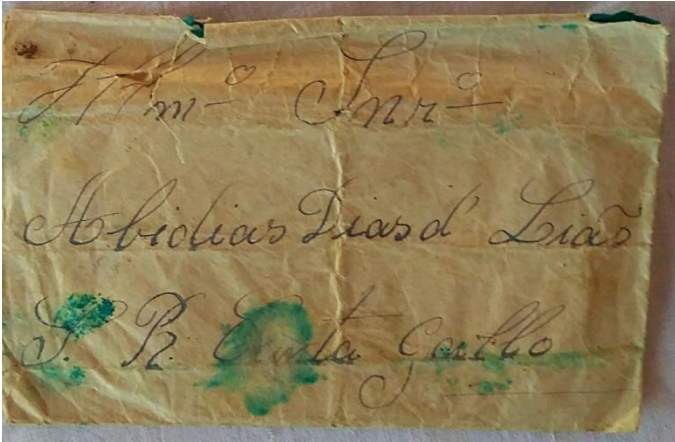 Illmº Snrº
Abidias Dias d' Lião
S. R. Canta gallo